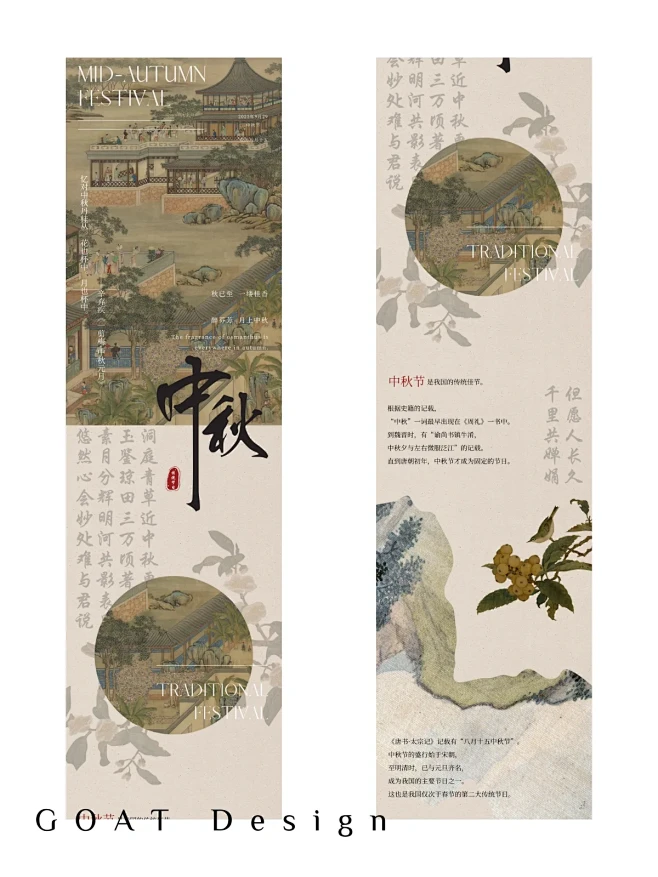 MID-AUTUMN
FESTIVAL
忆对中秋丹桂丛 花也杯中 月也杯中
辛弃疾《一剪梅·中秋元月》
秋已至 一缕桂香
醉芬芳 月上中秋
The fragrance of osmanthus is
everywhere in autumn
中秋
洞庭青草近中秋
玉鉴琼田三万顷著
素月分辉明河共影表
悠然心会妙处难与君说
TRADITIONAL
FESTIVAL
近中秋
三万顷著
辉明河共影表
会妙处难与君说
TRADITIONAL
FESTIVAL
中秋节 是我国的传统佳节。
根据史籍的记载,
“中秋”一词最早出现在《周礼》一书中。
到魏晋时,有“谕尚书镇牛淆,
中秋夕与左右微服泛江”的记载。
直到唐朝初年,中秋节才成为固定的节日。
但愿人长久
千里共婵娟
《唐书·太宗记》记载有“八月十五中秋节”。
中秋节的盛行始于宋朝,
至明清时,已与元旦齐名,
成为我国的主要节日之一。
这也是我国仅次于春节的第二大传统节日。
中秋节
GOAT Design